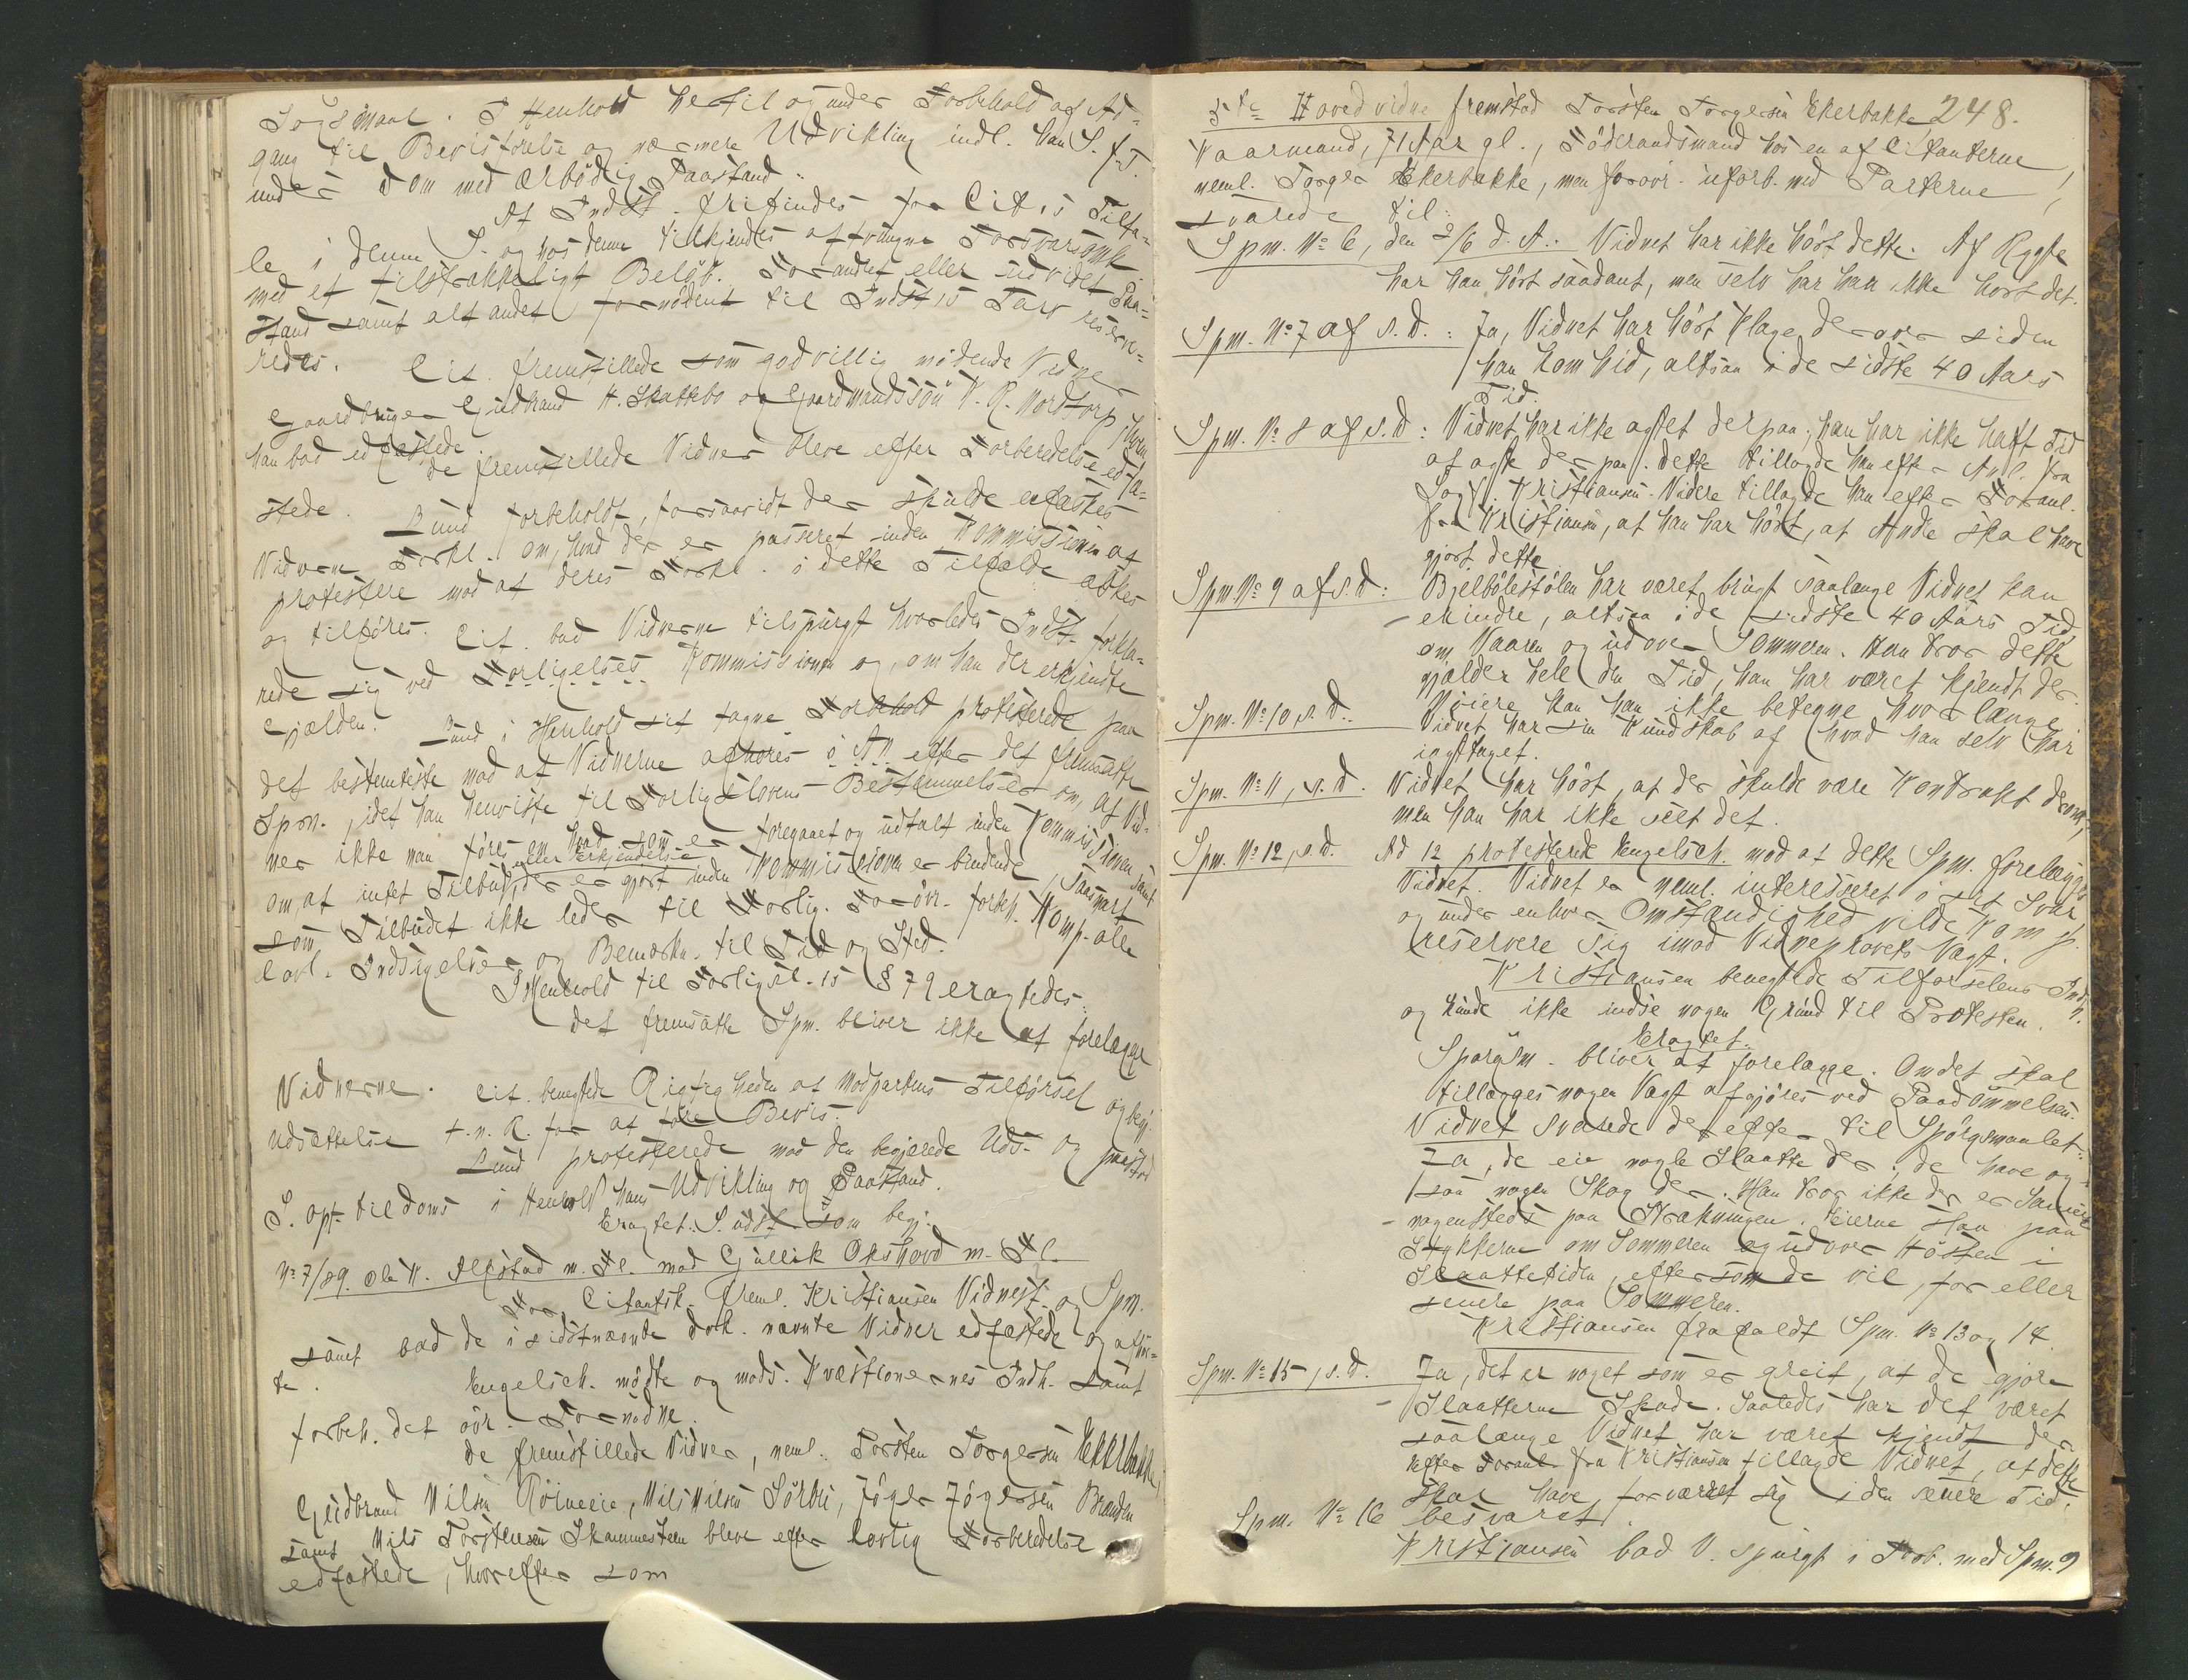 Søgsmaal. I Henhold hertil og under Forbehold af Ad-
gang til Bevisførelse og nærmere Udvikling indl. han S. f. T.
under Dom med ærbødig Paastand:
At Indst. frifindes for Cit.s Tilta-
le i denne S. og hos denne tilkjendes aftvungne Forsvarsomk.
med et tilstrækkeligt Beløb. Forandret eller udvidet Paa-
stand samt alt andet fornødent til Indst.s Tarv reserve-
redes.
Cit. fremstillede som godvillig mødende Vidner
Gaardbruger Gudbrand H. Skattebo og Gaardmandssøn K. R. Nordtorp, hvem
han bad edfæstede.
De fremstillede Vidner bleve efter Forberedelse edfæ-
stede.
Lund forbeholdt, forsaavidt der skulde æskes
Vidnerne Forkl. om, hvad der er passeret inden Kommissionen at
protestere mod at deres Forkl. i dette Tilfælde æskes
og tilføres.
Cit. bad Vidnerne tilspurgt hvorledes Indst. forkla-
rede sig ved Forligelses Kommissionen og, om han der erkjendte
Gjælden.
Lund i Henhold sit tagne Forbehold protesterede paa
det bestemteste mod at Vidnerne afhøres i A. efter det fremsatte
Spm., idet han henviste til Forligslovens Bestemmelser om, at Vid-
ner ikke maa føres om hvad som er foregaaet og udtalt inden Kommissionen samt
om, at intet Tilbud eller Erkjendelse der er gjort inden Kommissionen er bindende, saasnart
som Tilbudet ikke leder til Forlig. Forøvr. forbeh. Komp. alle
lovl. Indsigelser og Bemærkn. til Tid og Sted.
I Henhold til Forligsl.s § 79 eragtedes:
Det fremsatte Spm. bliver ikke at forelægge
Vidnerne.
Cit. benegtede Rigtigheden af Modpartens Tilførsel og begj.
Udsættelse t. n. R. for at føre Bevis.
Lund protesterede mod den begjærede Uds. og paastod
S. opt. til Doms i Henhold hans Udvikling og Paastand.
Eragtet: S. udst. som begj.
No 7/89. Ole K. Alfstad m. Fl. mod Gullik Okshovd m. Fl.
For Citantsk. freml. Kristiansen Vidnest. og Spm.
samt bad de i sidstnævnte Dok. nævnte Vidner edfæstede og afhør-
te.
Engelsch. mødte og mods. Kvæstionernes Indh. samt
forbeh. det øvr. Fornødne.
De fremstillede Vidner, neml. Torsten Torgersen Ekerbakke,
Gudbrand Nilsen Røineeie, Nils Nilsen Sørbø, Jøger Jøgersen Brænden
samt Nils Torstensen Skammestein bleve efter lovlig Forberedelse
edfæstede, hvorefter som
248.
5te Hovedvidne fremstod Torsten Torgersen Ekerbakke
Kaarmand, 71 Aar gl., Føderaadsmand hos en af Citanterne
neml. Torger Ekerbakke, men forøvr. uforb. med Parterne,
svarede til:
Spm. No 6, den 2/6 d. A.: Vidnet har ikke hørt dette. Af Rygte
har han hørt saadant, men selv har han ikke hørt det.
Spm. No 7 af s. D.: Ja, Vidnet har hørt Klage derover siden
han kom hid, altsaa i de sidste 40 Aars
Tid.
Spm. No 8 af s. D.: Vidnet har ikke agtet derpaa; han har ikke haft Tid
at agte derpaa. Dette tillagde han efter Anl. fra
Sagf. Kristiansen. Videre tillagde han efter Foranl.
fra Kristiansen, at han har hørt, at Andre skal have
gjort dette.
Spm. No 9 af s. D.: Bjelbølestølen har været brugt saalænge Vidnet kan
erindre, altsaa i de sidste 40 Aars Tid
om Vaaren og udover Sommeren. Han tror dette
gjælder hele den Tid, han har været kjendt der.
Nøiere kan han ikke betegne hvor længe
Spm. No 10, s. D.: Vidnet har sin Kundskab af hvad han selv har
iagttaget.
Spm. No 11, s. D. Vidnet har hørt, at der skulde være Kontrakt derom,
men han har ikke seet det.
Spm. No 12, s. D. Ad 12 protesterede Engelsch. mod at dette Spm. forelægges
Vidnet. Vidnet er neml. interesseret i sit Svar
og under enhver Omstændighed vilde Komp.
reservere sig imod Vidneprovets Vægt.
Kristiansen benegtede Tilførselens Indh.
og kunde ikke indse nogen Grund til Protesten.
Eragtet.
Spørgsm. bliver at forelægge. Om det skal
tillægges nogen Vægt afgjøres ved Paadømmelsen.
Vidnet svarede derefter til Spørgsmaalet:
Ja, de eie nogle Slaatte der; de have og-
saa nogen Skog der. Han tror ikke der er Sameie
nogensteds paa Strækningen. Eierne slaa paa
Stykkerne om Sommeren og udover Høsten i
Slaattetiden, eftersom de vil, før eller
senere paa Sommeren.
Kristiansen frafaldt Spm. No 13 og 14.
Spm. No 15, s. D. Ja, det er noget som er greit, at de gjøre
Slaatterne Skade. Saaledes har det været
saalænge Vidnet har været kjendt der
Efter Foranl. fra Kristiansen tillagde Vidnet, at dette
skal have forværret sig i den senere Tid.
Spm. No 16 besvaret.
Kristiansen bad V. spurgt i Forb. med Spm. 9